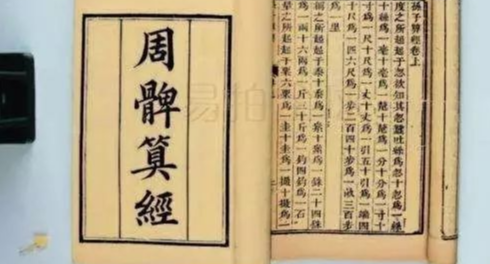 周髀算經
孫子算經卷上
度之所起起於忽欲知其忽蠶吐絲爲忽十忽爲一
絲十絲爲一毫十毫爲一氂十氂爲一分十分爲一寸
十寸爲一尺十尺爲一丈十丈爲一引五十引爲一端四
十尺爲一疋六尺爲一步二百四十步爲一畝三百步
爲一里
稱之所起起於黍十黍爲一絫十絫爲一銖二十四銖
爲一兩十六兩爲一斤三十斤爲一鈞四鈞爲一石
量之所起起於粟六粟爲一圭十圭爲一撮十撮爲一
易拍